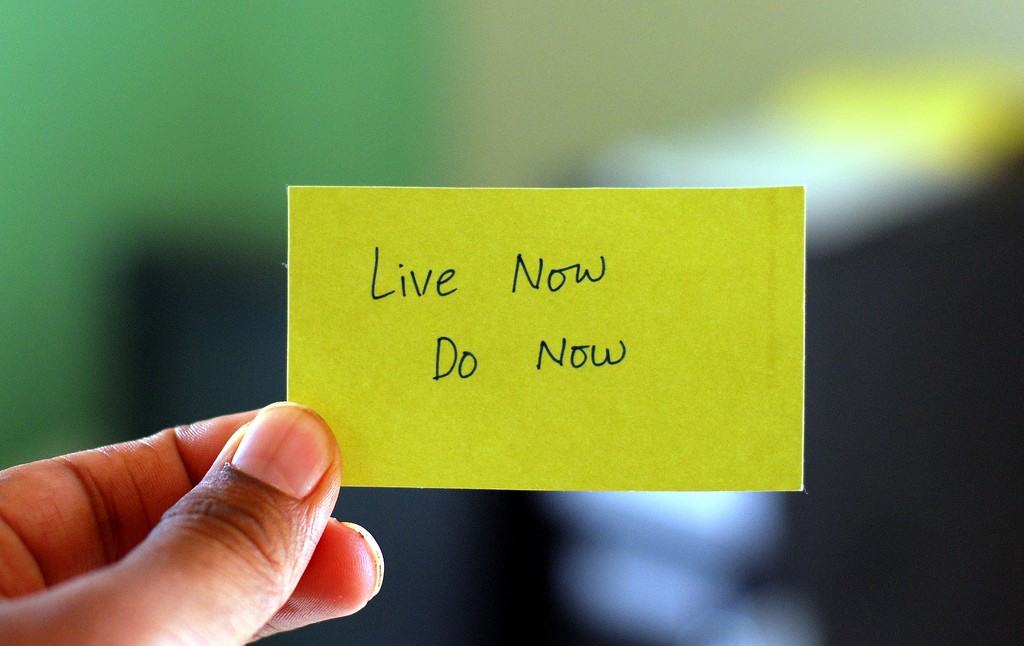 Live Now
Do Now